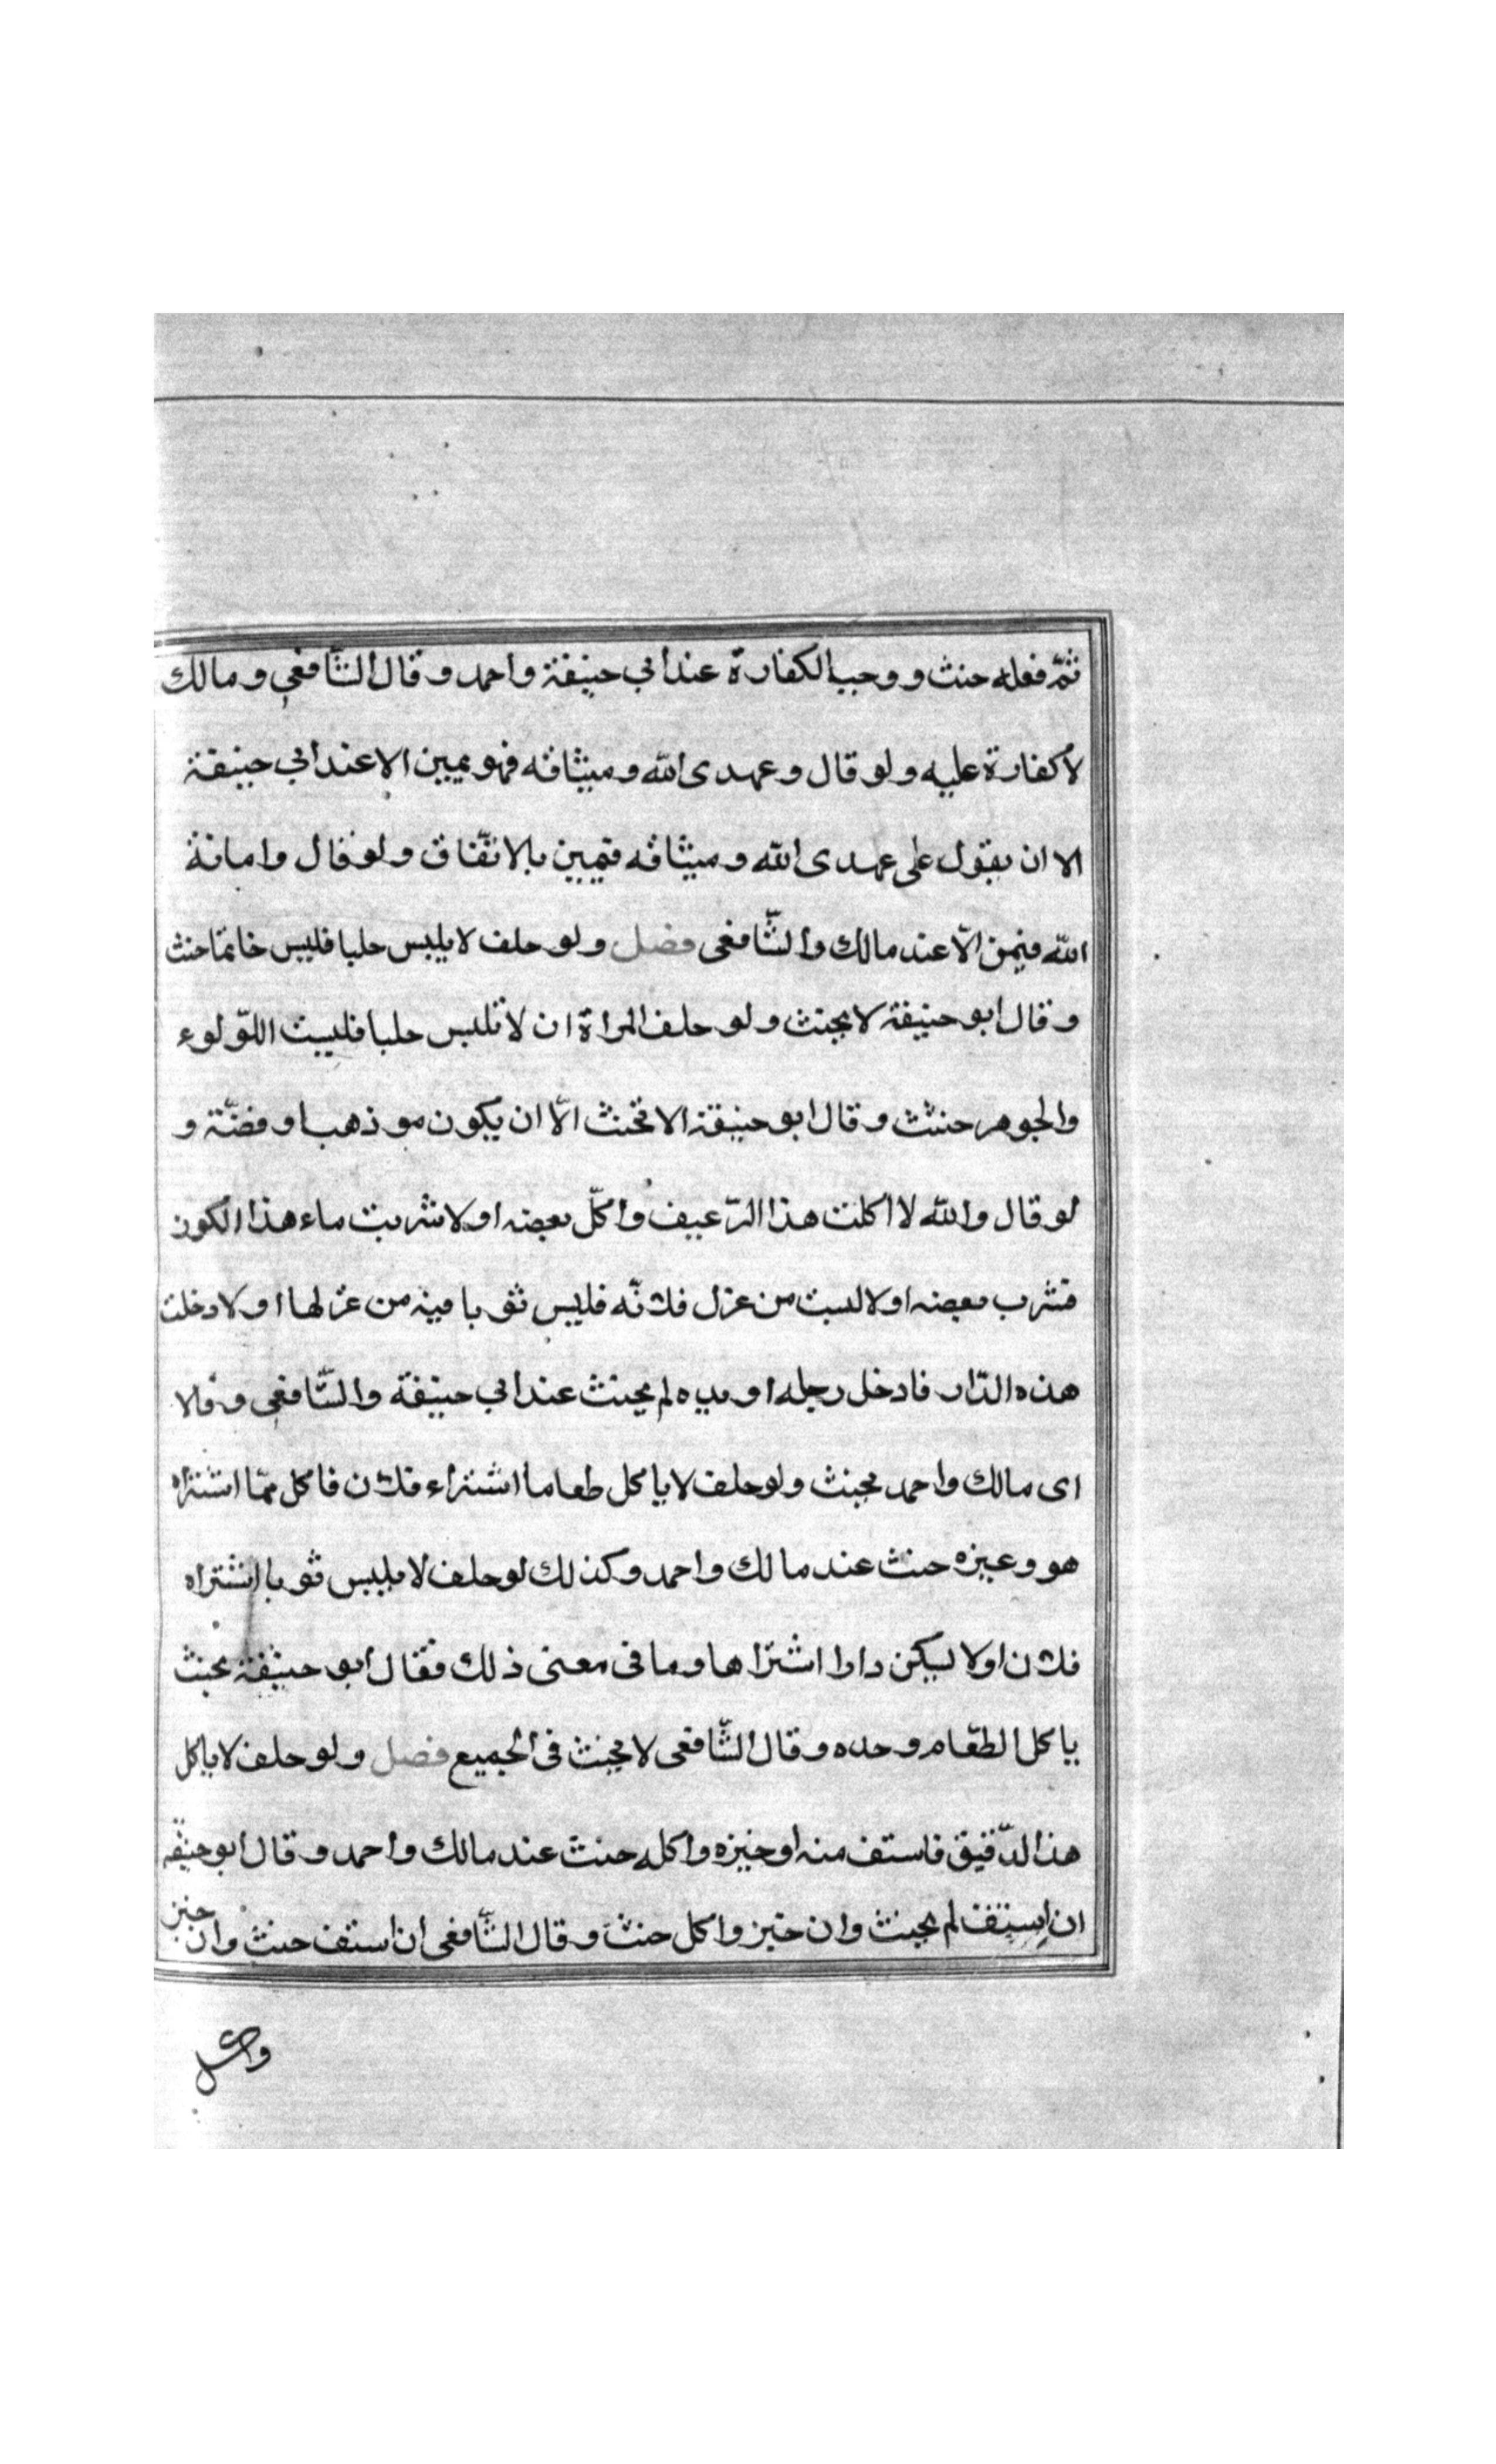 ثمّ فعله حنث ووجب الكفارة عند ابي حنيفة واحمد وقال الشّافعي ومالك
لاكفارة عليه ولو قال وعهدى الله وميثاقه فهو يمين الا عند ابي حنيفة
الا ان يقول على عهدى الله وميثاقه فيمين بالاتّفاق ولو قال وامانة
الله فيمن الّا عند مالك والشّافعى فصل ولو حلف لا يلبس حليا فلبس خاتما حنث
وقال ابو حنيفة لا يحنث ولو حلف المراة ان لا تلبس حليا فلبست اللّولوء
والجوهر حنثت وقال ابو حنيفة الا تحنث الّا ان يكون مو ذهب او فضّة و
لو قال والله لا اكلت هذا الرّغيف واكلّ بعضه او لا شربت ماء هذا الكون
فشرب بعضه او لا لبست من غزل فلانّه فلبس ثوبا فيه من غزلها او لا دخلت
هذه الدّار فادخل رجله او يده لم يحنث عند ابي حنيفة والشّافعي وقالا
اى مالك واحمد يحنث ولو حلف لا ياكل طعاما اشتراء فلان فاكل ممّا اشتراه
هو وغيره حنث عند مالك واحمد وكذلك لو حلف لا يلبس ثوبا اشتراه
فلان او لا يسكن دارا اشتراها وما فى معنى ذلك فقال ابو حنيفة يحنث
ياكل الطعّام وحده وقال الشّافعى لا يحنث فى الجميع فصل ولو حلف لا ياكل
هذ الدّقيق فاستف منه او خبزه واكله حنث عند مالك واحمد وقال ابو حنيفه
ان استف لم يحنث وان خبز واكل حنث وقال الشّافعى ان استف حنث وان خبز
واكل